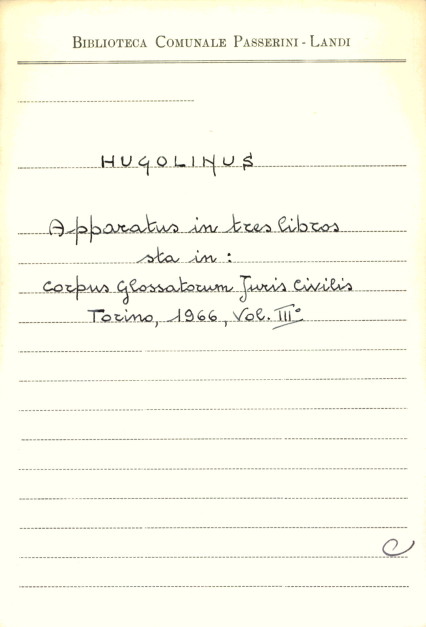 BIBLIOTECA COMUNALE PASSERINI - LANDI
HUGOLINUS
Apparatus in tres libros
sta in :
Corpus Glossatorum Juris Civilis
Torino, 1966, Vol. III°
C